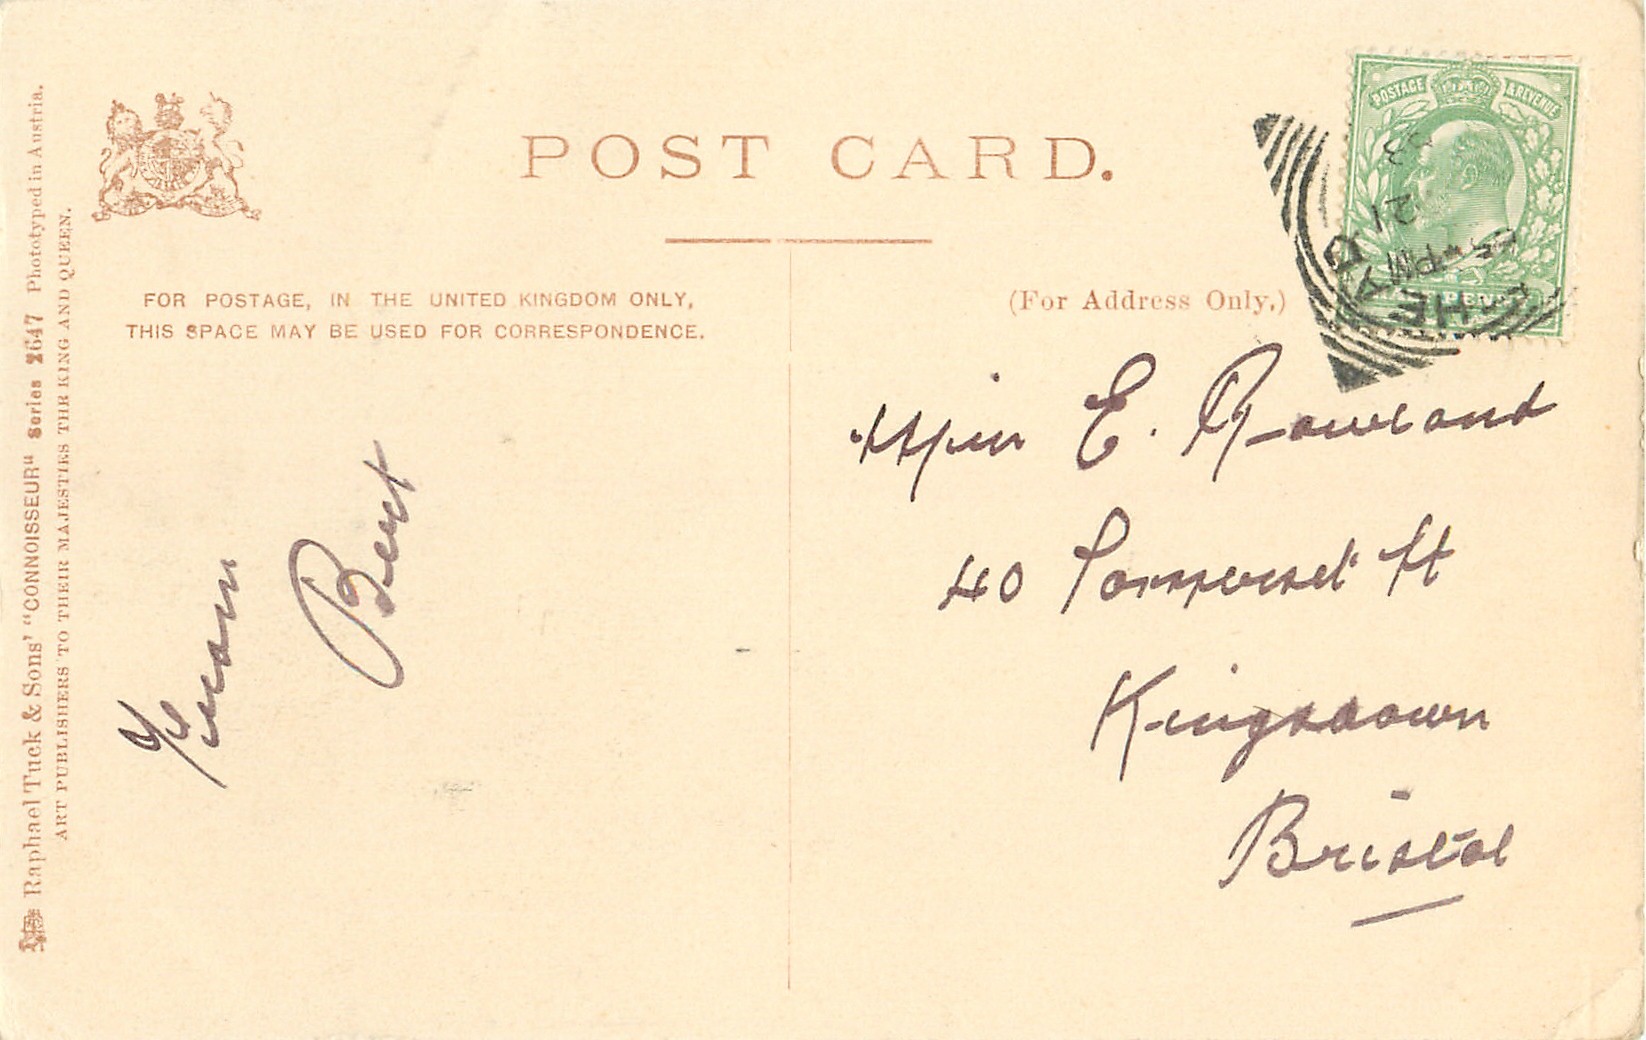 POST CARD.
FOR POSTAGE, IN THE UNITED KINGDOM ONLY,
THIS SPACE MAY BE USED FOR CORRESPONDENCE.
(For Address Only.)
Raphael Tuck & Sons' "CONNOISSEUR" Series 2647 Phototyped in Austria.
ART PUBLISHERS TO THEIR MAJESTIES THE KING AND QUEEN.
POSTAGE & REVENUE
21
PM
From
Bert
Miss E. Rowland
40 Somerset St
Kingsdown
Bristol